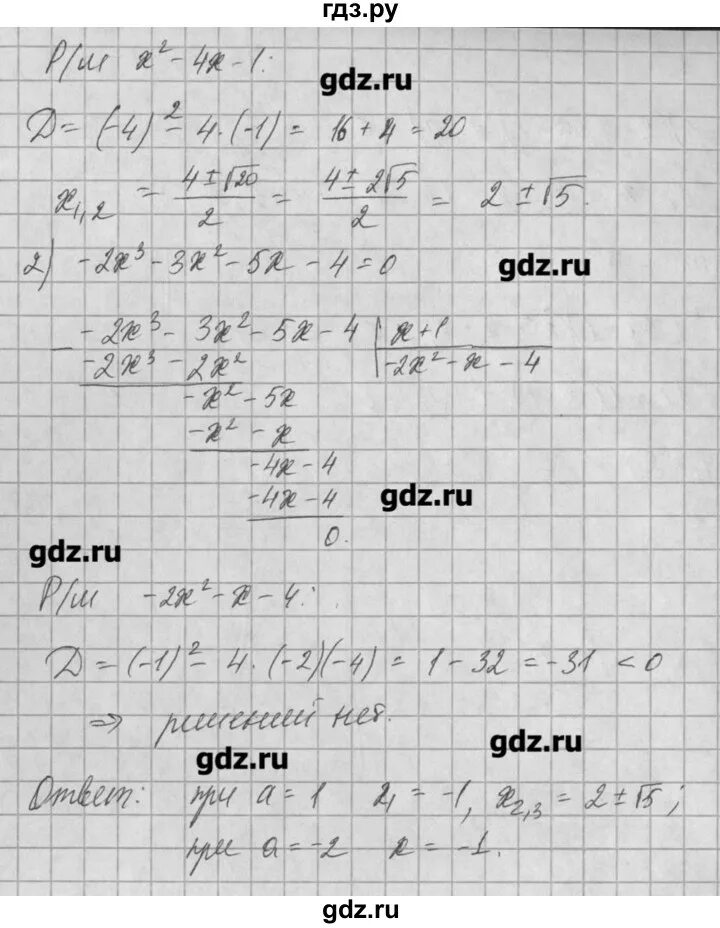 гдз.ру
Р/м x² - 4x - 1:
gdz.ru
D = (-4)² - 4·(-1) = 16 + 4 = 20
x₁,₂ = (4 ± √20)/2 = (4 ± 2√5)/2 = 2 ± √5.
2) -2x³ - 3x² - 5x - 4 = 0
gdz.ru
-2x³ - 3x² - 5x - 4 | x+1
-2x³ - 2x² | -2x² - x - 4
-x² - 5x
-x² - x
-4x - 4
-4x - 4
gdz.ru
0.
gdz.ru
Р/м -2x² - x - 4:
D = (-1)² - 4·(-2)(-4) = 1 - 32 = -31 < 0
⇒ решений нет.
gdz.ru
gdz.ru
Ответ: при a = 1 x₁ = -1, x₂,₃ = 2 ± √5;
при a = -2 x = -1.
gdz.ru